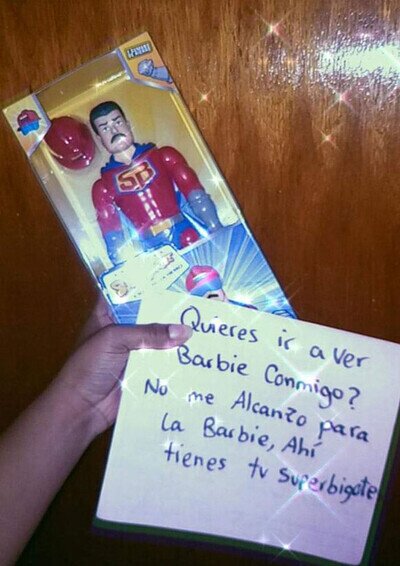 SB
Quieres ir a ver
Barbie Conmigo?
No me Alcanzo para
La Barbie, Ahí
tienes tu superbigote